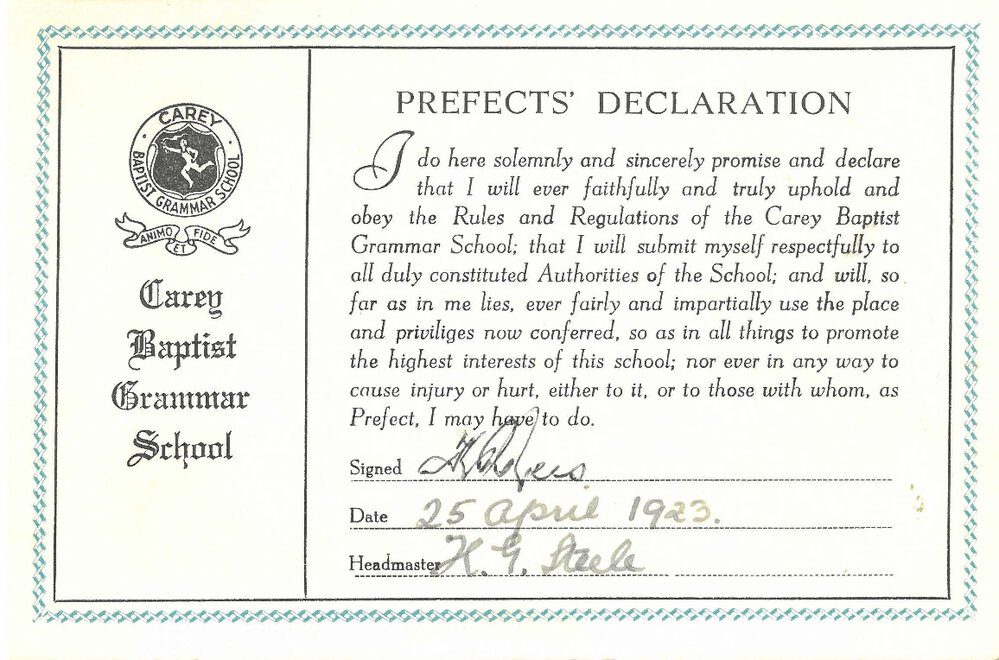 CAREY
BAPTIST GRAMMAR SCHOOL
ANIMO ET FIDE
Carey
Baptist
Grammar
School
PREFECTS' DECLARATION
I do here solemnly and sincerely promise and declare
that I will ever faithfully and truly uphold and
obey the Rules and Regulations of the Carey Baptist
Grammar School; that I will submit myself respectfully to
all duly constituted Authorities of the School; and will, so
far as in me lies, ever fairly and impartially use the place
and priviliges now conferred, so as in all things to promote
the highest interests of this school; nor ever in any way to
cause injury or hurt, either to it, or to those with whom, as
Prefect, I may have to do.
Signed
Date 25 April 1923.
Headmaster H. G. Steele